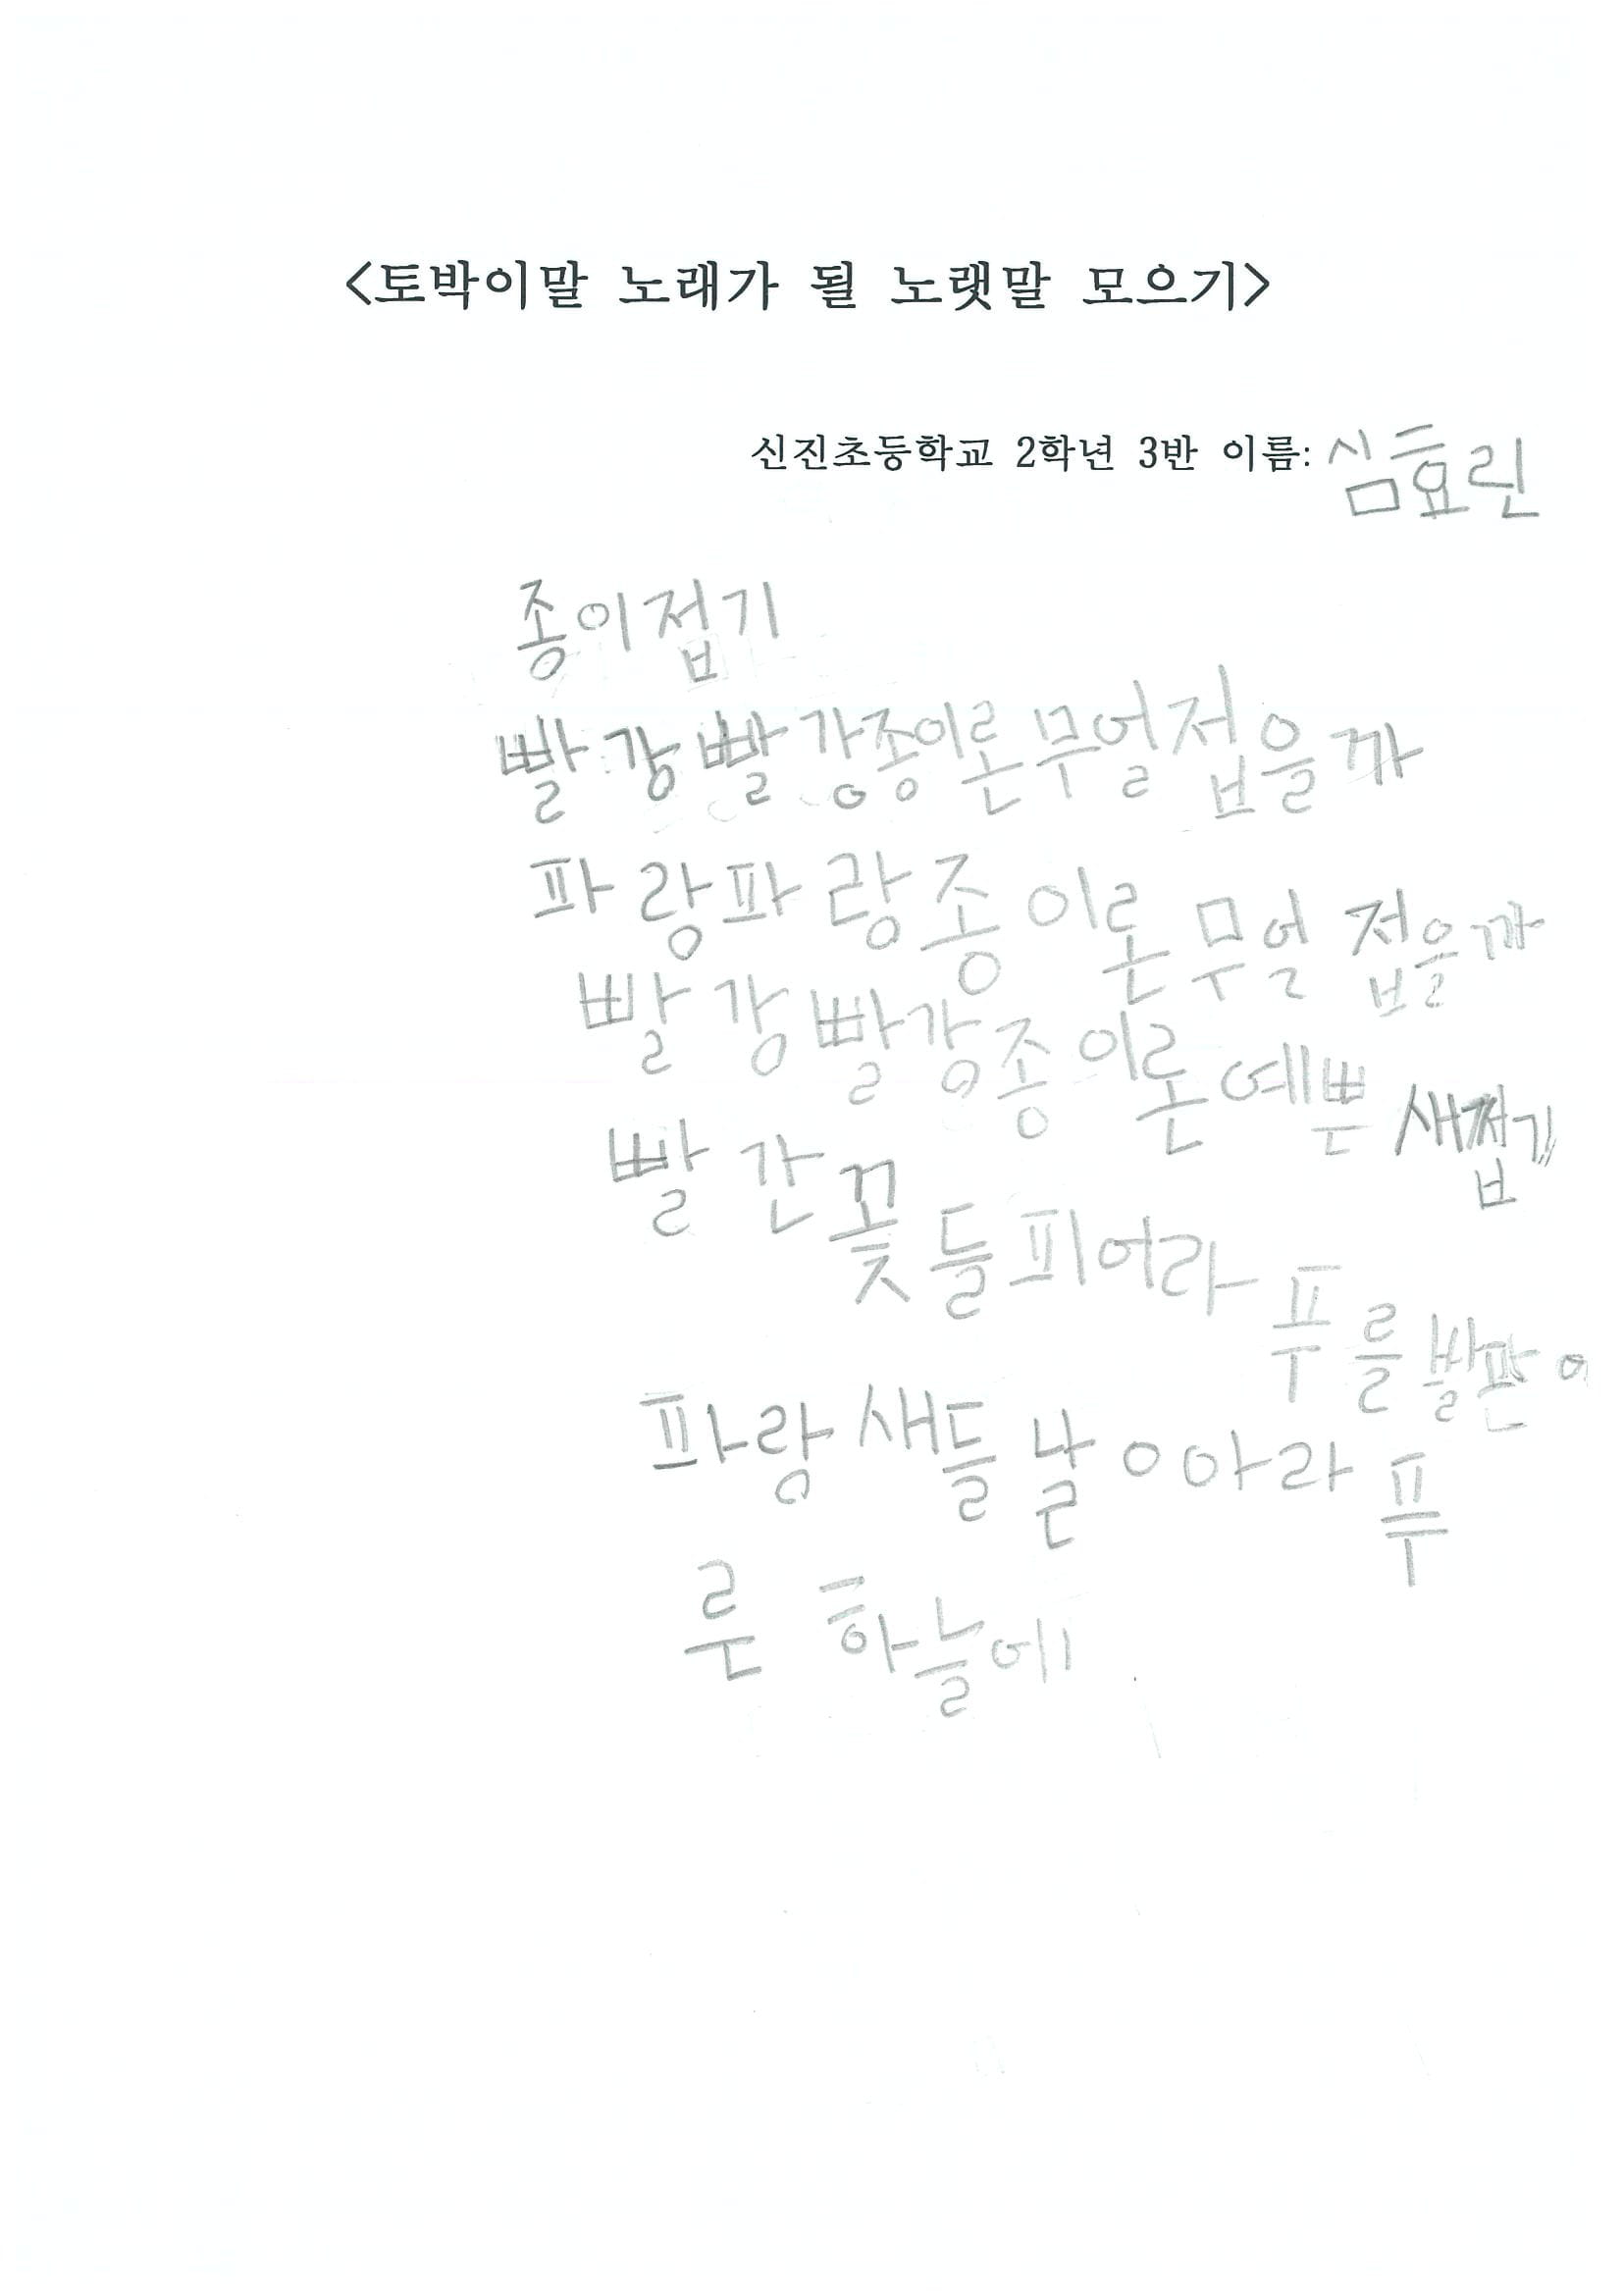 <토박이말 노래가 될 노랫말 모으기>
신진초등학교 2학년 3반 이름: 심효린
종이접기
빨강빨강종이론무얼접을까
파랑파랑종이론무얼접을까
빨강빨강종이론예쁜새접기
빨간꽃들피어라푸를발판에
파랑새들날아라푸
룬 하늘에